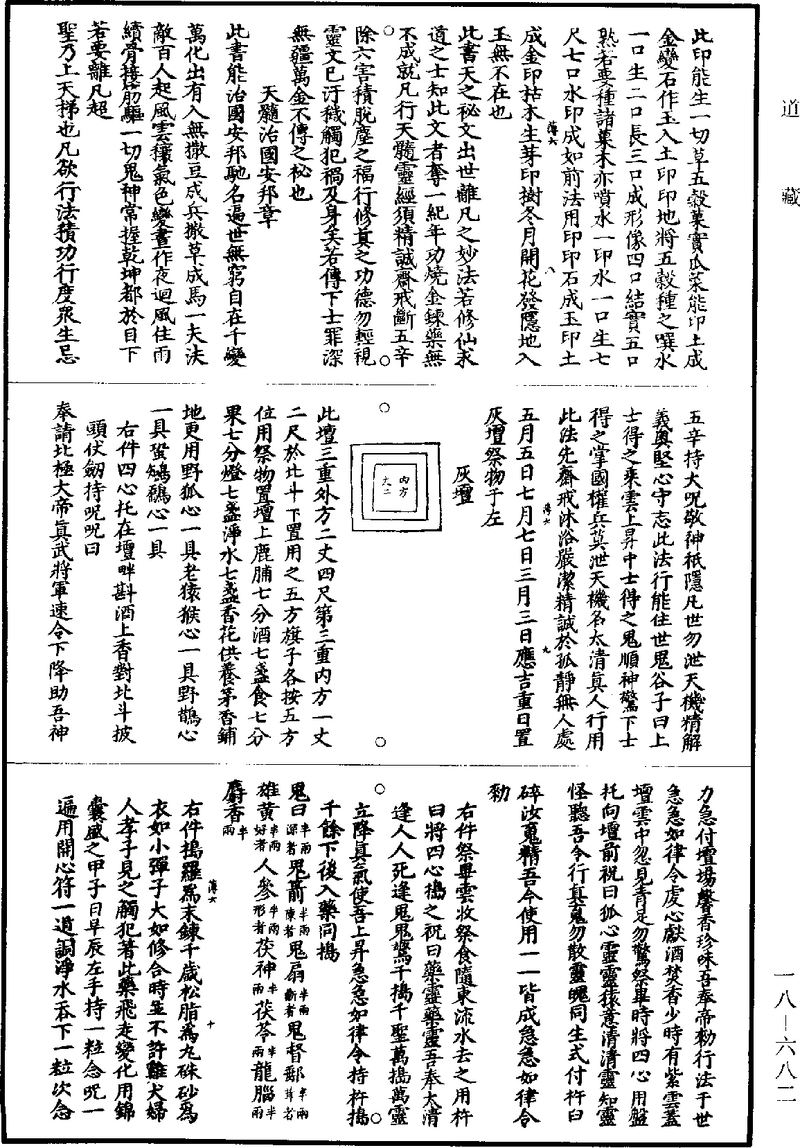 道藏
此印能生一切草五穀菓實瓜菜能印土成
金變石作玉入土印印地將五穀種之噀水
一口生二口長三口成形像四口結實五口
熟若要種諸菓木亦噴水一印水一口生七
尺七口水印成如前法用印印石成玉印土
薄六
成金印枯木生芽印樹冬月開花發隱地入
玉無不在也
此書天之祕文出世離凡之妙法若修仙求
道之士知此文者奪一紀年功燒金鍊藥無
不成就凡行天髓靈經須精誠齋戒斷五辛
除六害積脫塵之福行修真之功德勿輕視
靈文已汙穢觸犯禍及身矣若傳下士罪深
無疆萬金不傳之祕也
天髓治國安邦章
此書能治國安邦馳名遍世無窮自在千變
萬化出有入無撒豆成兵撒草成馬一夫法
敵百人起風雲穰氣色變晝作夜迴風住雨
續骨接筋驅一切鬼神常握乾坤都於目下
若要離凡超
聖乃上天梯也凡欲行法積功行度眾生忌
五辛持大呪敬神祇隱凡世勿泄天機精解
義奧堅心守志此法行能住世鬼谷子曰上
士得之乘雲上昇中士得之鬼順神驚下士
得之掌國權兵莫泄天機名太清真人行用
此法先齋戒沐浴嚴潔精誠於孤靜無人處
薄六
九
五月五日七月七日三月三日應吉重日置
灰壇祭物于左
灰壇
內方
丈二
此壇三重外方二丈四尺第三重內方一丈
二尺於北斗下置用之五方旗子各按五方
位用祭物置壇上鹿脯七分酒七盞食七分
果七分燈七盞淨水七盞香花供養茅香鋪
地更用野狐心一具老猿猴心一具野鵲心
一具鵓鴿心一具
右件四心托在壇畔斟酒上香對北斗披
頭伏劒持呪呪曰
奉請北極大帝真武將軍速令下降助吾神
力急付壇場馨香珍味吾奉帝勑行法于世
急急如律令虔心獻酒焚香少時有紫雲蓋
壇雲中忽見青足勿驚祭畢時將四心用盤
托向壇前祝曰狐心靈靈猿意清清靈知靈
怪聽吾令行真鬼勿散靈魄同生式付杵臼
碎汝寃精吾今使用一一皆成急急如律令
勑
右件祭畢雲收祭食隨東流水去之用杵
臼將四心搗之祝曰藥靈藥靈吾奉太清
逢人人死逢鬼鬼驚千搗千聖萬搗萬靈
立降真氣使吾上昇急急如律令持杵搗
千餘下後入藥同搗
鬼臼半兩深者鬼箭半兩陳者鬼扇半兩斷者鬼督郵半兩
雄黃半兩好者人參半兩形者茯神半兩茯苓半兩龍腦半兩
麝香半兩
右件搗羅為末鍊千歲松脂為丸硃砂為
薄六
十
衣如小彈子大如修合時並不許雞犬婦
人孝子見之觸犯著此藥飛走變化用錦
囊盛之甲子日早辰左手持一粒念呪一
遍用開心符一道調淨水吞下一粒次念
一八—六八二